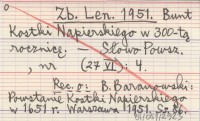 Zb. Len. 1951. Bunt
Kostki Napierskiego w 300-tą
rocznicę. — Słowo Powsz.
, nr (27 VI): 4.
Rec. o: B. Baranowski:
Powstanie Kostki Napierskiego
w 1651 r. Warszawa 1951. Ss.